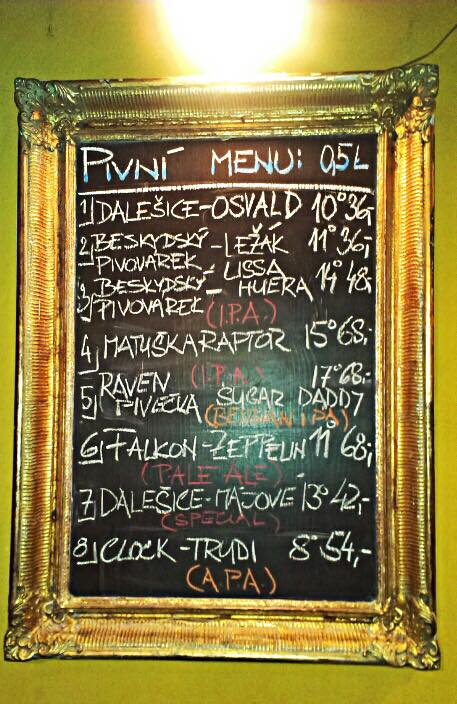 PIVNÍ MENU: 0,5L
1) DALEŠICE-OSVALD 10° 36,-
2) BESKYDSKÝ PIVOVÁREK - LEŽÁK 11° 36,-
3) BESKYDSKÝ PIVOVÁREK - LISSA HUERA 14° 48,-
(I.P.A.)
4) MATUŠKA RAPTOR 15° 68,-
(I.P.A.)
5) RAVEN PIVEČKA SUGAR DADDY 17° 68,-
(BELGIAN IPA)
6) FALKON-ZEPPELIN 11° 68,-
(PALE ALE)
7) DALEŠICE-MÁJOVÉ 13° 42,-
(SPECIAL)
8) CLOCK-TRUDI 8° 54,-
(A.P.A.)